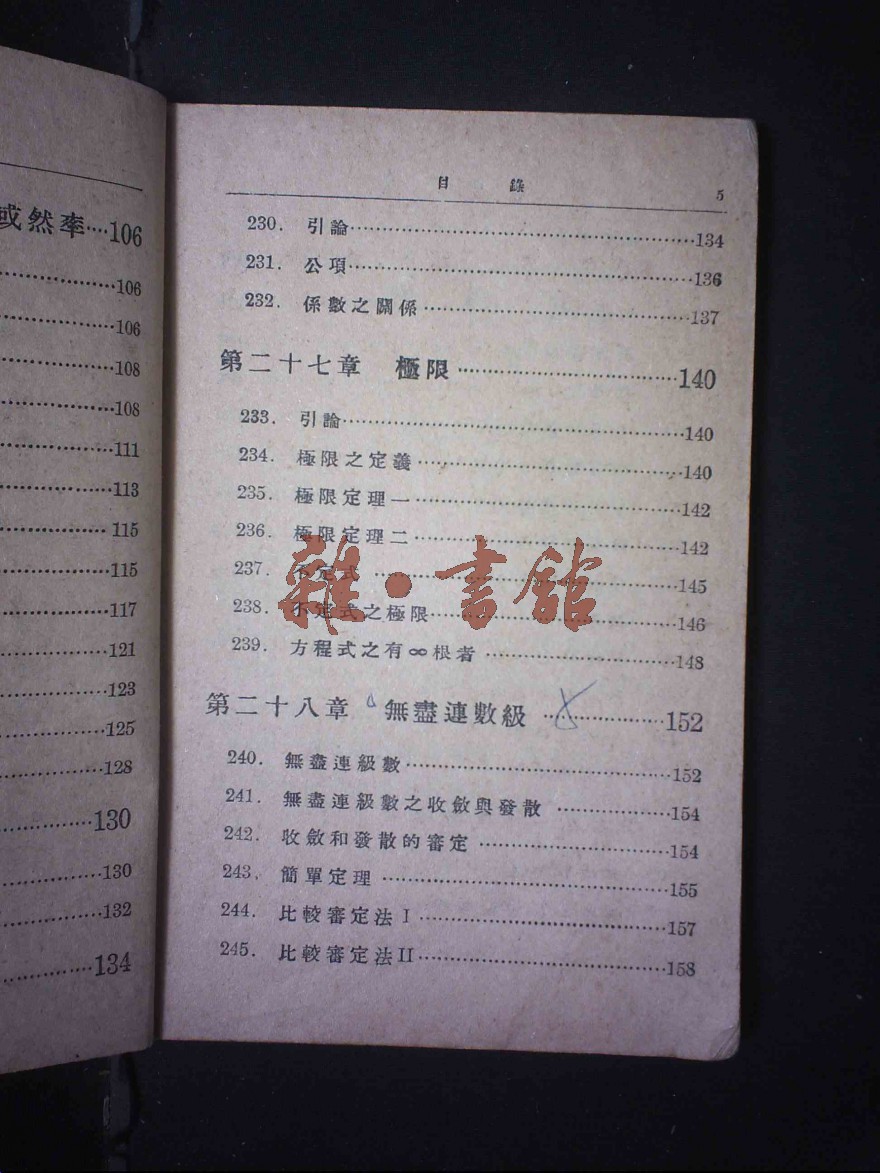 或然率····106
106
106
108
108
111
113
115
115
117
121
123
125
128
130
130
132
134
目 錄 5
230. 引論 134
231. 公項 136
232. 係數之關係 137
第二十七章 極限 140
233. 引論 140
234. 極限之定義 140
235. 極限定理一 142
236. 極限定理二 142
237. 不定式 145
238. 不定式之極限 146
239. 方程式之有∞根者 148
第二十八章 無盡連數級 152
240. 無盡連級數 152
241. 無盡連級數之收斂與發散 154
242. 收斂和發散的審定 154
243. 簡單定理 155
244. 比較審定法 I 157
245. 比較審定法 II 158
雜·書館